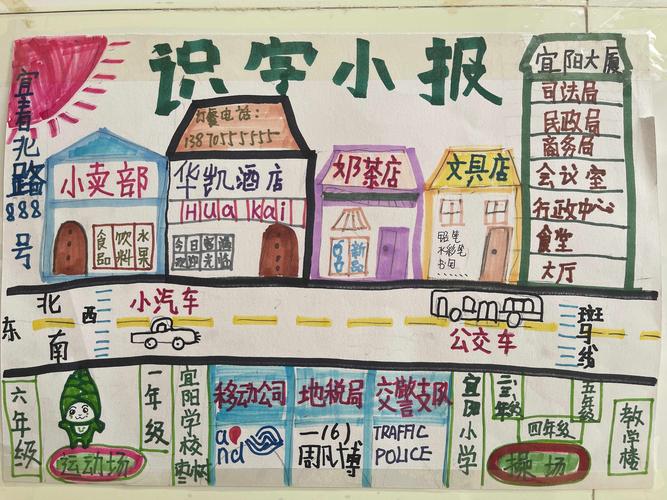 识字小报
宜春北路
888
号
小卖部
食品
饮料
水果
订餐电话:
13870555555
华凯酒店
Huakai
今日
奶茶店
新品
文具店
铅笔
水彩笔
书包
宜阳大厦
司法局
民政局
商务局
会议室
行政中心
食堂
大厅
北
东
西
南
小汽车
公交车
斑马线
六年级
运动场
一年级
宜阳学校
移动公司
and
地税局
一(6)
周凡博
交警支队
TRAFFIC
POLICE
宜阳小学
二、三年级
四年级
五年级
操场
教学楼